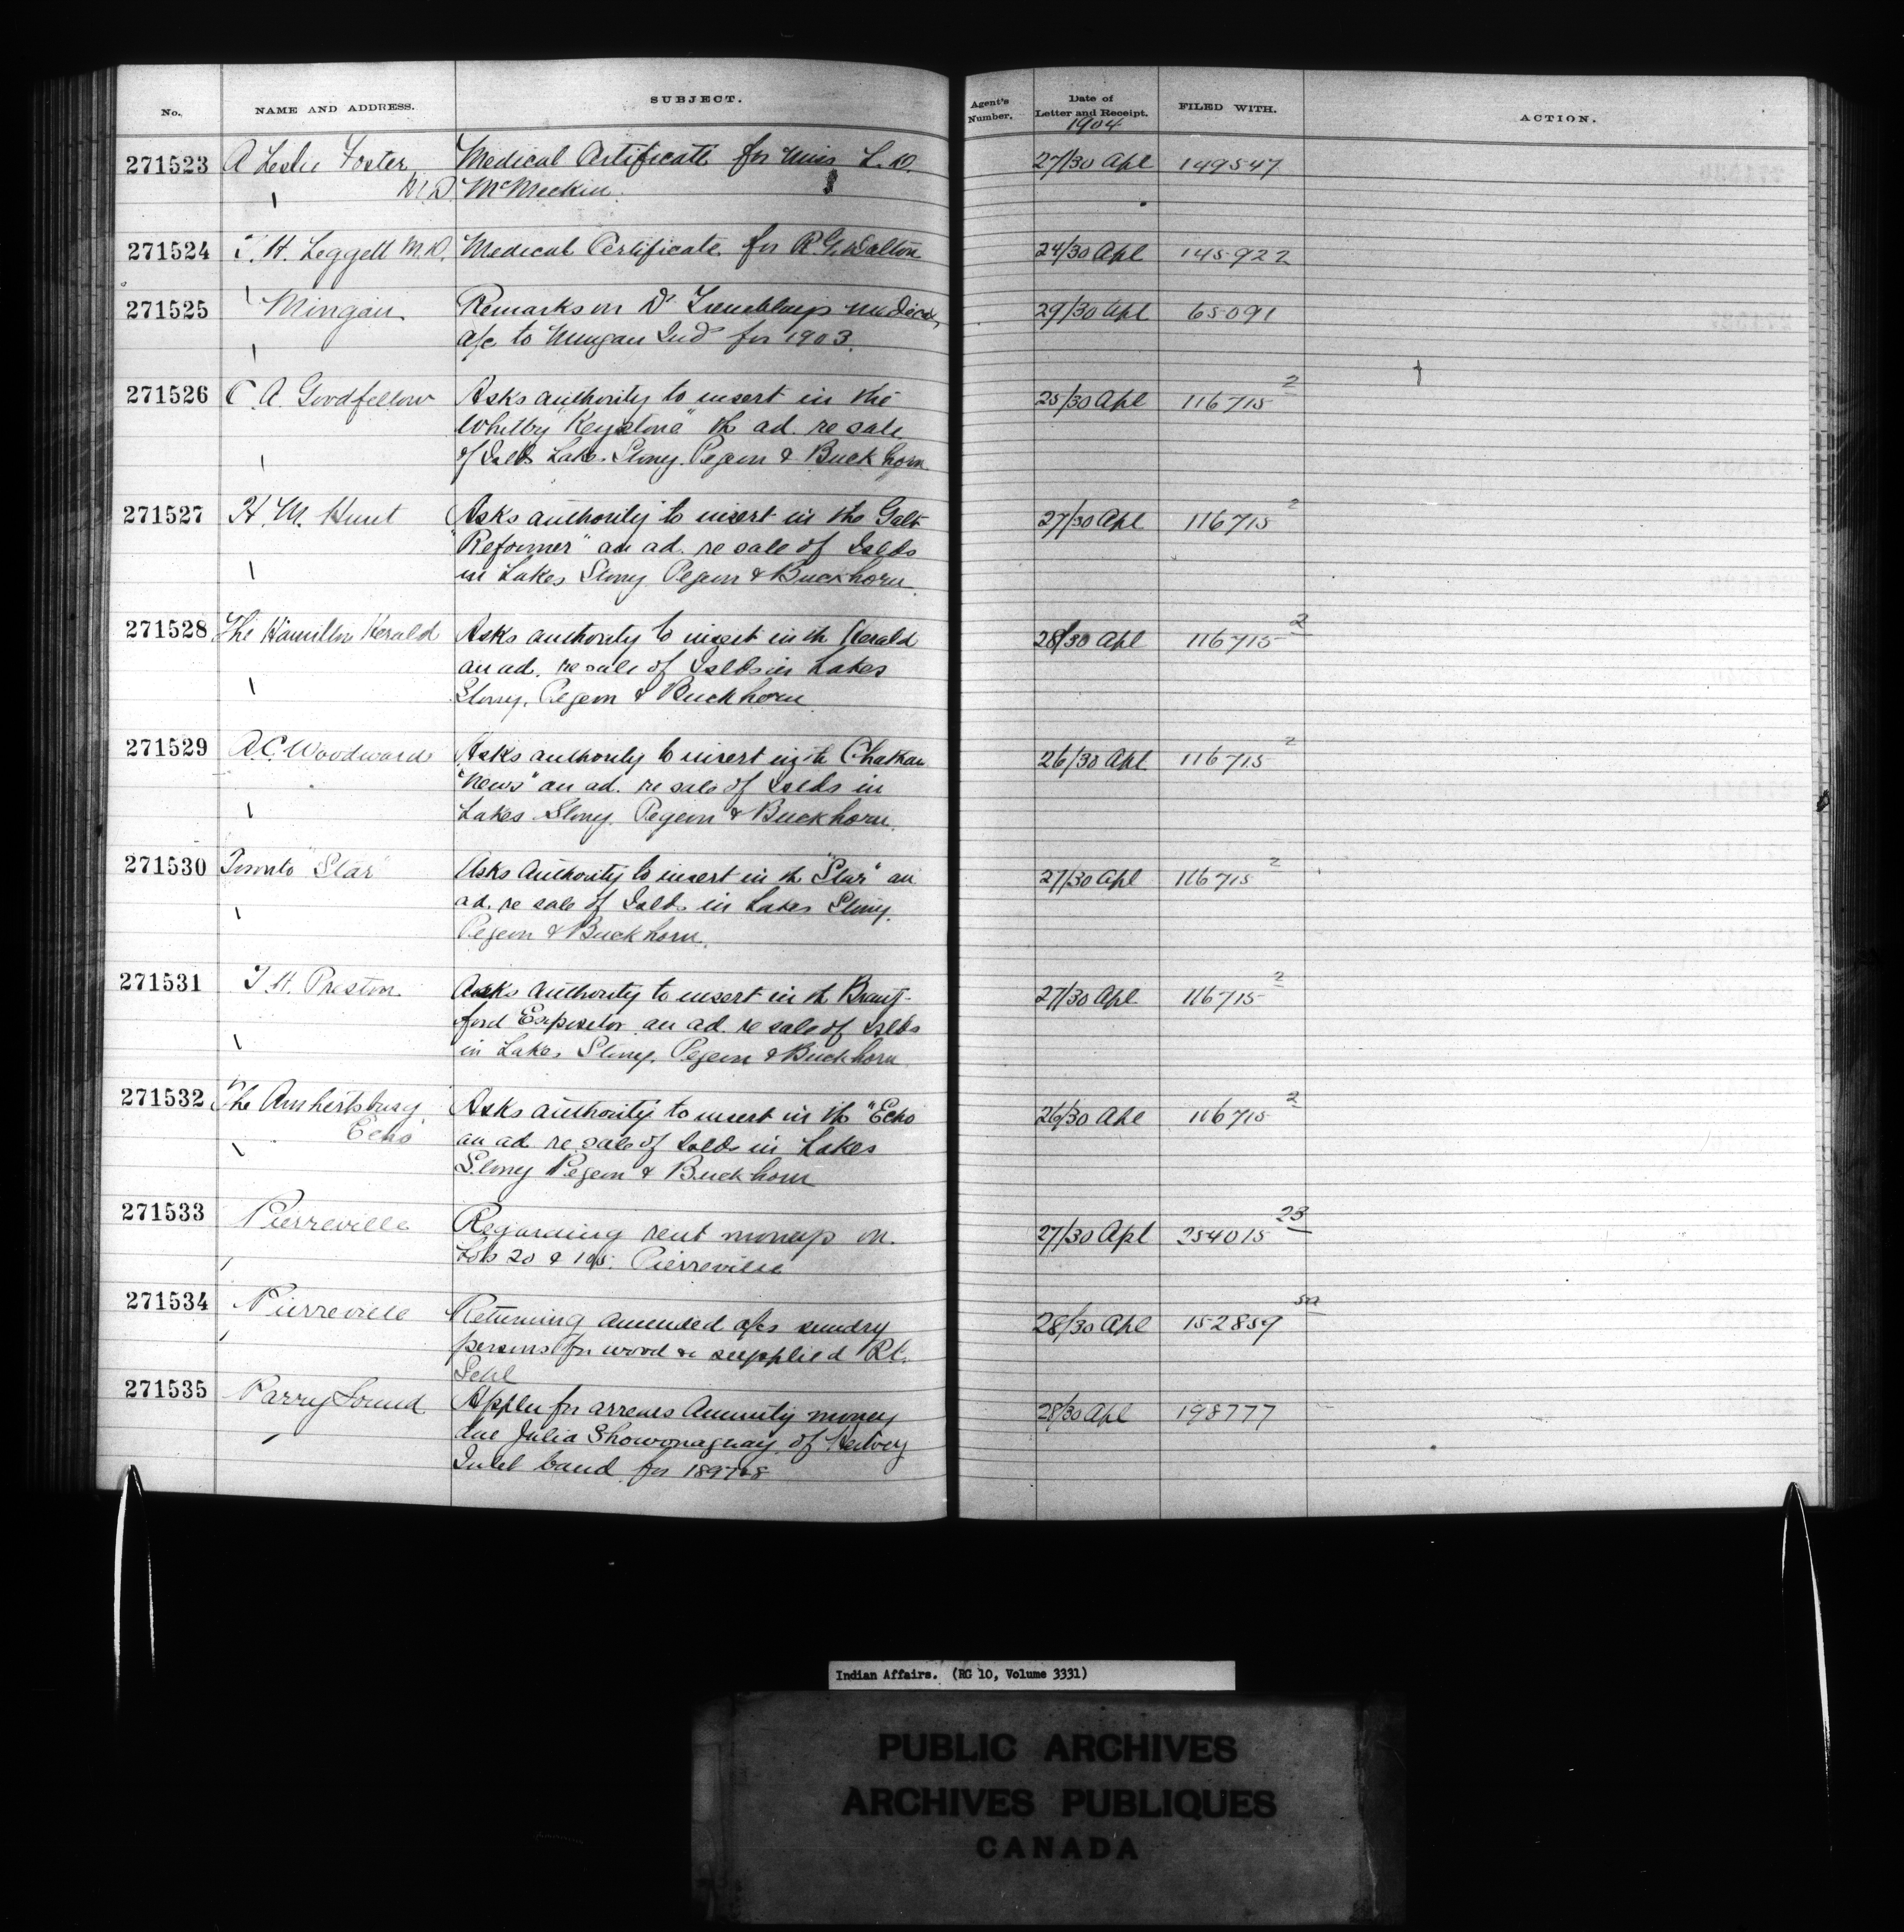 No. NAME AND ADDRESS. SUBJECT. Agent's Number. Date of Letter and Receipt. FILED WITH. ACTION.
1904
271523 A Leslie Foster Medical Certificate for Miss L. D. 27/30 Apl 149547
M.D. McMeekin.
271524 T. H. Leggett M.D. Medical Certificate for R. G. Dalton 24/30 Apl 145922
271525 Mingan Remarks on Dr Tremblays medical 29/30 Apl 65091
a/c to Mingan Inds for 1903.
271526 C. A. Goodfellow Asks authority to insert in the 25/30 Apl 116715 2
Whitby "Keystone" the ad. re sale
of Islds Lakes Stony. Pegeon & Buckhorn
271527 H. M. Hunt Asks authority to insert in the Galt 27/30 Apl 116715 2
"Reformer" an ad. re sale of Islds
in Lakes Stony Pegeon & Buckhorn
271528 The Hamilton Herald Asks authority to insert in th Herald 28/30 Apl 116715 2
an ad. re sale of Islds in Lakes
Stony, Pegeon & Buckhorn
271529 A.C. Woodward Asks authority to insert in th Chatham 26/30 Apl 116715 2
"News" an ad. re sale of Islds in
Lakes Stony. Pegeon & Buckhorn.
271530 Toronto "Star" Asks Authority to insert in th "Star" an 27/30 Apl 116715 2
ad. re sale of Islds in Lakes Stony.
Pegeon & Buckhorn.
271531 T. H. Preston Asks Authority to insert in th Brant- 27/30 Apl 116715 2
ford Expositor an ad. re sale of Islds
in Lakes Stony. Pegeon & Buckhorn
271532 The Amhertsburg Asks authority to insert in th "Echo 26/30 Apl 116715 2
Echo an ad re sale of Islds in Lakes
Stony Pegeon & Buckhorn
271533 Pierreville Regarding rent moneys on 27/30 Apl 254015 23
Lots 20 & Pierreville
271534 Pierreville Returning amended a/cs sundry 28/30 Apl 152859
persons for wood &c supplied R.C.
Schl
271535 Parry Sound Appln for arrears Annuity money 28/30 Apl 198777
due Julia Showonagnay of Henvey
Inlet band for
Indian Affairs. (RG 10, Volume 3331)
PUBLIC ARCHIVES
ARCHIVES PUBLIQUES
CANADA